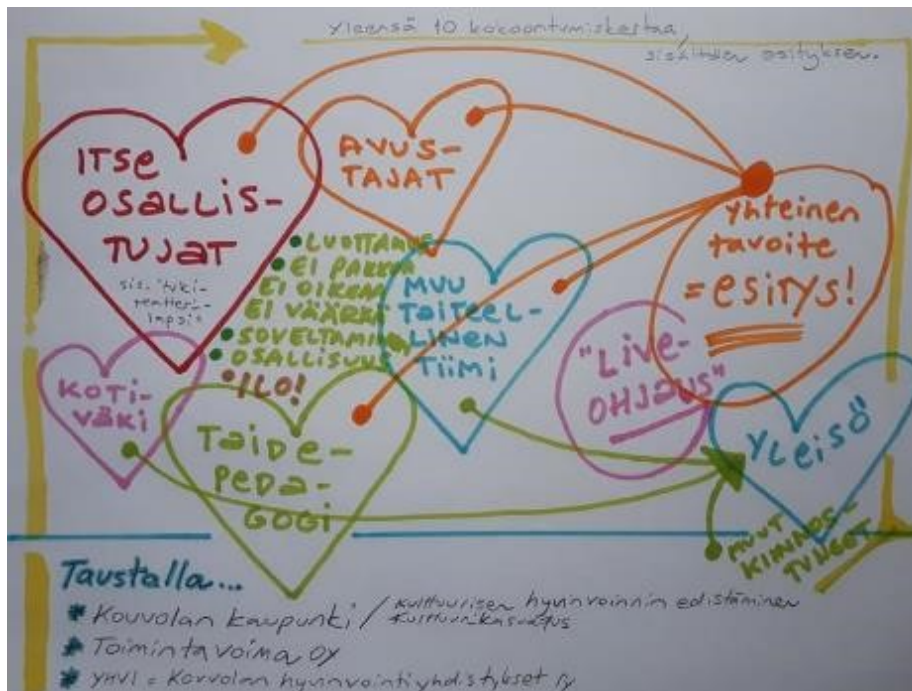 yleensä 10 kokoontumiskertaa,
sisältäen esityksen.
ITSE
OSALLIS-
TUJAT
AVUS-
TAJAT
• LUOTTAMUS
• EI PAKKOA
EI OIKEAA
EI VÄÄRÄÄ
• SOVELTAMINEN
• OSALLISUUS
• ILO!
MUU
TAITEEL-
LINEN
TIIMI
yhteinen
tavoite
= esitys!
"LIVE-
OHJAUS"
KOTI-
VÄKI
TAIDE-
PEDA-
GOGI
YLEISÖ
MUUT
KIINNOS-
TUNEET
Taustalla...
* Kouvolan kaupunki / kulttuurisen hyvinvoinnin edistäminen
kulttuurikasvatus
* Toimintavoima OY
* YHVI = Kouvolan hyvinvointiyhdistykset ry